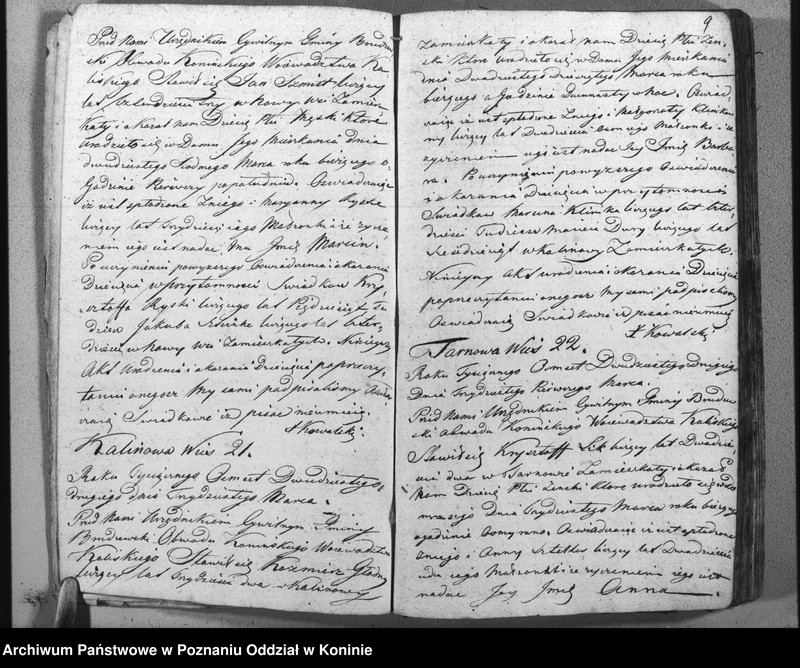 Przed Nami Urzędnikiem Cywilnym Gminy Brudzew
ski Obwodu Konińskiego Wojewodztwa Ka
liskiego Stawił się Jan Szmitt liczący
lat trzydzieści trzy w Nowy Wsi Zamiesz
kały i okazał nam Dziecię Płci Męski które
urodziło się w Domu Jego Mieszkania Dnia
dwudziestego Marca roku bieżącego o
Godzinie Pierwszy po południu. Oswiadczając
iż iest spłodzone z niego i Maryanny
liczący lat trzydzieści iego Małżonki i że życze
niem iego iest nadac Mu Jmię Marcin.
Po uczynieniu powyższego Oswiadczenia i okazaniu
Dziecięcia w przytomności Swiadków Krzy
sztoffa Ryski liczącego lat Pięćdziesiąt Tu
dzież Jakuba liczącego lat czter
dzieści w Nowy Wsi Zamieszkałych. Niniejszy
Akt Urodzenia i okazania Dziecięcia poprzeczy
taniu onegoż My sami podpisaliśmy Oswiad
czaią Swiadkowie iż pisać nieumieią.
J Kowalski
Kalinowa Wieś 21.
Roku Tysiącznego Osmset Dwudziestego
drugiego dnia Trzydziestego Marca.
Przed Nami Urzędnikiem Cywilnym Gminy
Brudzewski Obwodu Konińskiego Wojewodztwa
Kaliskiego Stawił się Kazmierz
liczący lat trzydzieści dwa w Kalinowy
9
Zamieszkały i okazał nam Dziecię Płci Żeń
ski które urodziło się w Domu Jego Mieszkania
dnia Dwudziestego Dziewiątego Marca roku
bieżącego o Godzinie Dwunasty w Noc. Oswiad
czaiąc iż iest spłodzone z niego i Małgorzaty
liczący lat Dwadzieścia osm iego Małżonki i że
życzeniem iego iest nadac Jey Jmię Barba
ra. Po uczynieniu powyższego Oswiadczenia
i okazania Dziecięcia w przytomności
Swiadków Marcina Klimka liczącego lat czter
dzieści Tudzież Macieia Dury liczącego lat
w Kalinowy Zamieszkałych.
Niniejszy Akt urodzenia i okazania Dziecięcia
poprzeczytaniu onegoż My sami podpisaliśmy
Oswiadczaią Swiadkowie iż pisać nieumieią
J Kowalski
Tarnowa Wieś 22.
Roku Tysiącznego Osmset Dwudziestego Drugiego
Dnia Trzydziestego Pierwszego Marca.
Przed Nami Urzędnikiem Cywilnym Gminy Brudzew
ski Obwodu Konińskiego Wojewodztwa Kaliskiego
Stawił się Krzysztoff liczący lat Dwadzie
ścia dwa w Tarnowie Zamieszkały i okazał
Nam Dziecię Płci Żeński które urodziło się w Do
dnia Trzydziestego Marca roku bieżącego
o godzinie Osmy rano. Oswiadczaiąc iż iest spłodzone
z niego i Anny liczący lat Dwadzieścia
iego Małżonki i że życzeniem iego iest
nadac Jey Jmię Anna
Archiwum Państwowe w Poznaniu Oddział w Koninie